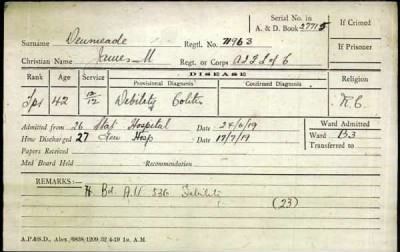 Serial No. in A. & D. Book 27715
If Crimed
Surname Denmeade Regtl. No. 71963
If Prisoner
Christian Name James M Regt. or Corps
DISEASE
Rank Age Service Provisional Diagnosis Confirmed Diagnosis Religion
Tpr 42 Debility Colitis R.C
Admitted from 26 Stat. Hospital Date 24/6/19 Ward Admitted
How Discharged 27 Gen Hosp Date 17/7/19 Ward B3
Papers Received Transferred to
Med Board Held Recommendation
REMARKS:
Bd. A.H 536 Debility
(23)
A.P.&S.D., Alex./9838-1209/32/4-19/1m. A.M.